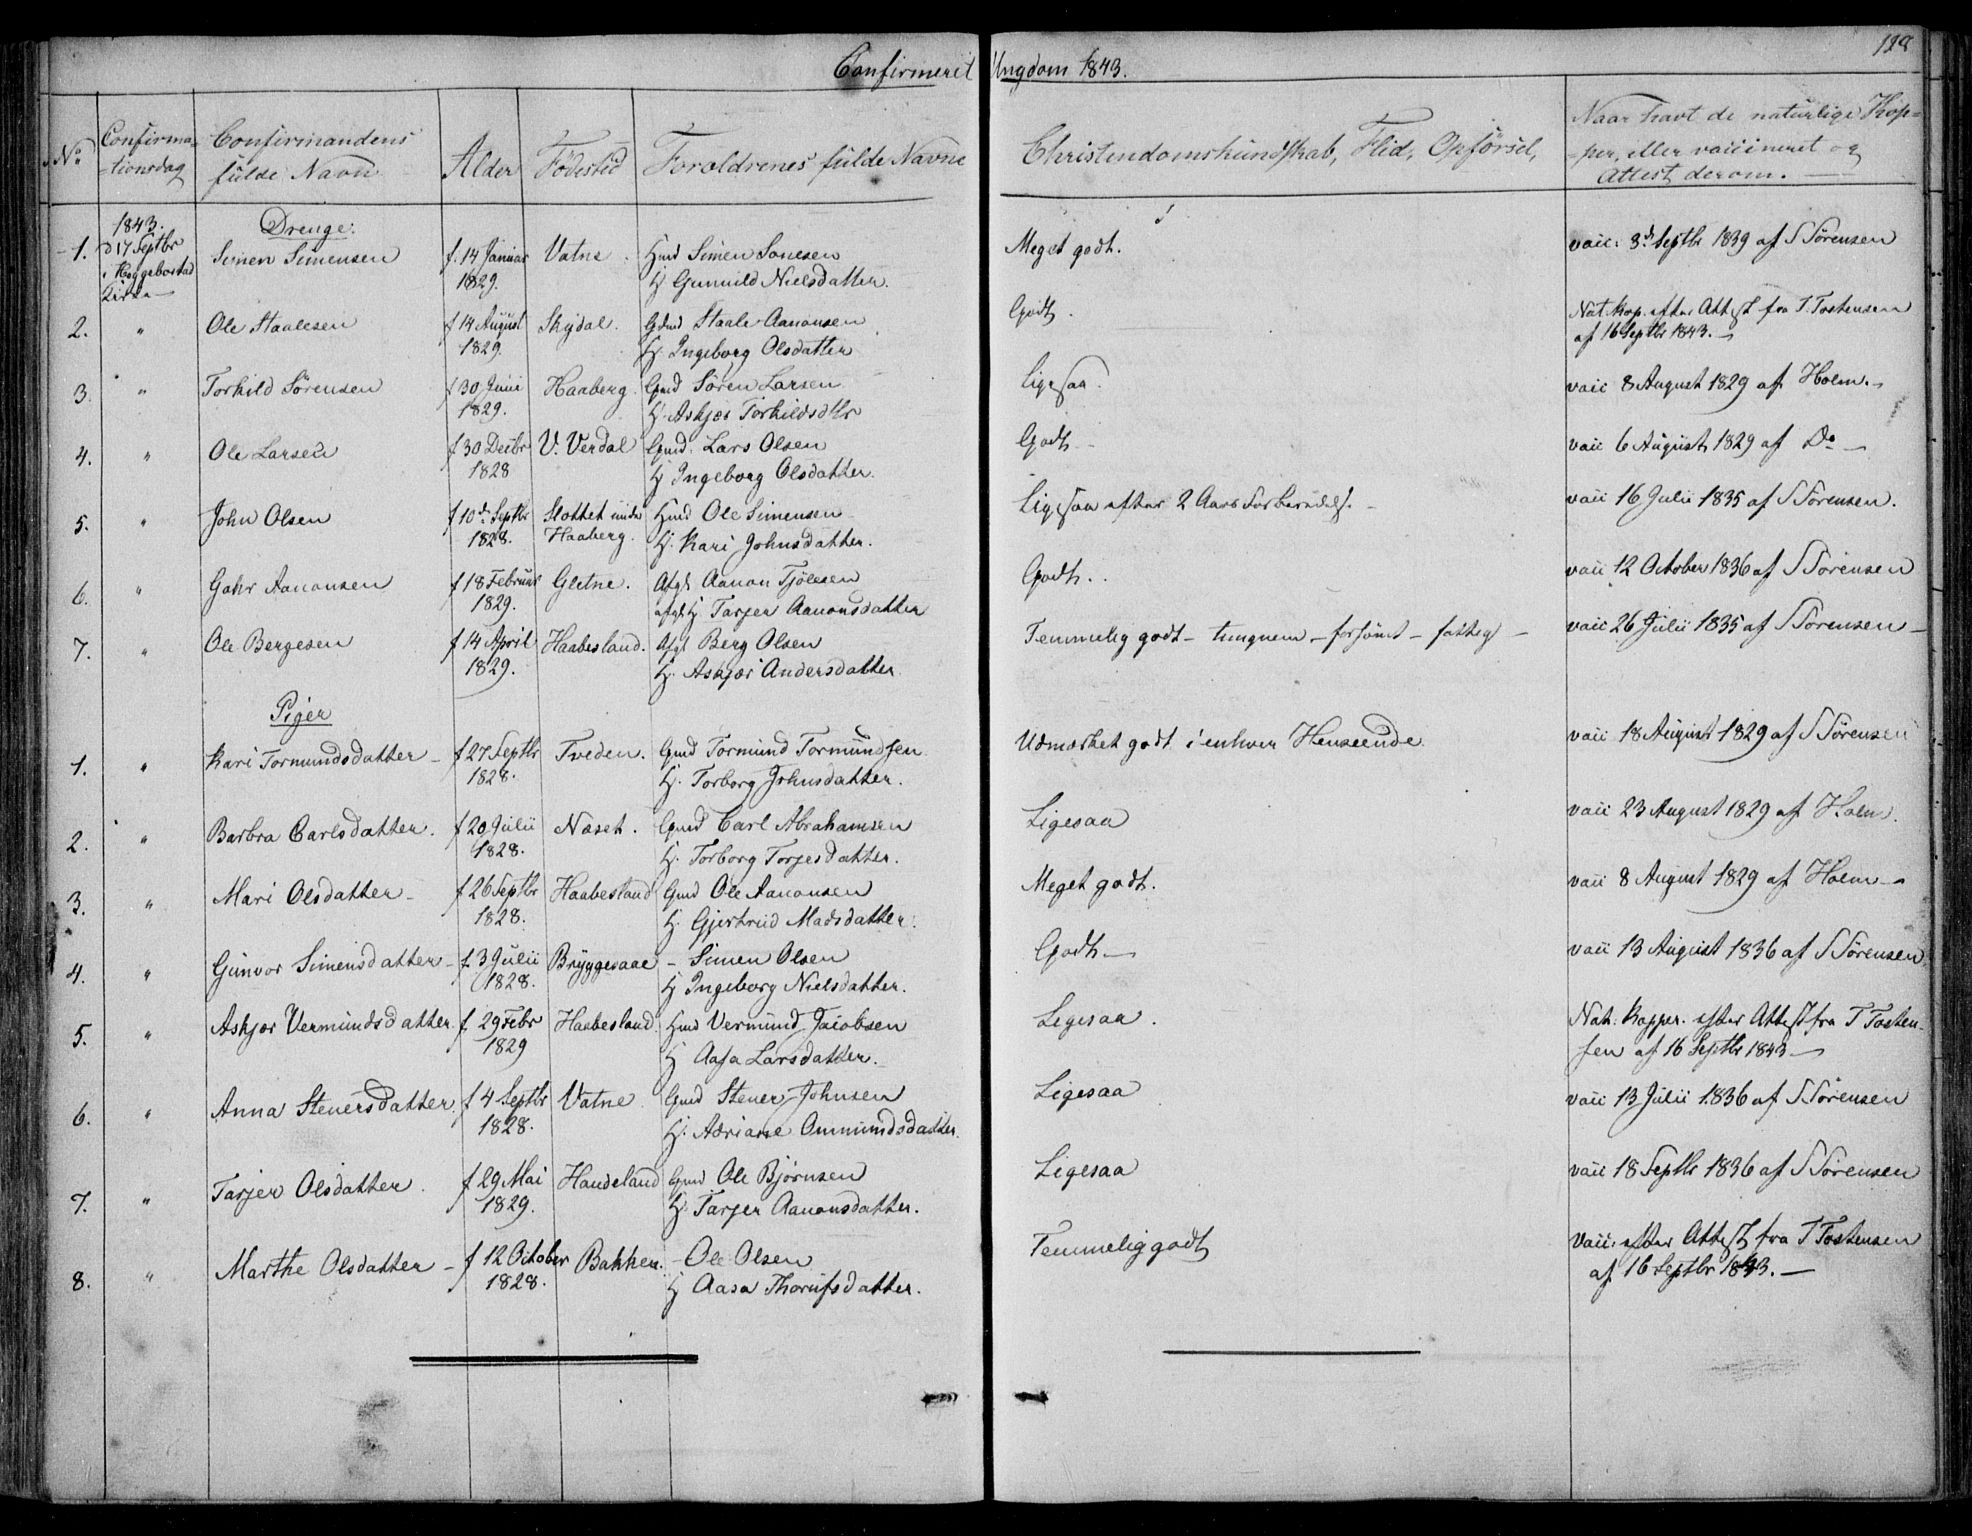 128
Confirmeret Ungdom 1843.
No
Confirma-
-tionsdag
Confirmandens
fulde Navn
Alder
Födested
Foraldrenes fulde Navne
Christendomskundskab, Flid, Opförsel,
Naar havt de naturlige Kop-
-per, eller vaccineret og
Attest derom.
1843.
D 17 Septbr
i Heggebostad
Kirke
Drenge:
1. Simen Simensen f. 14 Januar Vatne. Hmd Simen Sonesen Meget godt. vacc: 3d Septbr 1839 af S Sörensen
1829. H Gunnild Nielsdatter.
2. " Ole Staalesen f 14 August Skjdal. Gdmd Staale Aanonsen Godt. Nat. Kop. efter Attest fra T. Tostensen
1829. H. Ingeborg Olsdatter af 16 Septbr 1843.
3. " Torkild Sörensen f 30 Junii Haaberg. Gmd Sören Larsen Ligesaa. vacc 8 August 1829 af Holm.
1829. H. Askjer Torkildsdtr
4. " Ole Larsen f 30 Decbr V. Verdal Gmd. Lars Olsen Godt vacc 6 August 1829 af Do
1828 H Ingeborg Olsdatter.
5. " John Olsen f 10de Septbr Slottet under Hmd Ole Simensen Ligesaa efter 2 Aars Forberedelse. vacc 16 Julii 1835 af S Sörensen.
1828. Haaberg. H. Kari Johnsdatter.
6. " Gahr Aanonsen f 18 Februar Gletne. Afgt Aanon Tjölesen Godt. vacc 12 October 1836 af S Sörensen
1829. afgt H Tarjer Aanonsdatter
7. " Ole Bergesen f 14 April Haabesland. Afgt Berg Olsen Temmelig godt – tungnem – forsömt – fattig – vacc 26 Julii 1835 af S Sörensen
1829. H. Askjer Andersdatter
Piger
1. " Kari Tormundsdatter f 27 Septbr Tveden. Gmd Tormund Tormundsen Udmærket godt i enhver Henseende. vacc 18 August 1829 af S Sörensen
1828. H. Torborg Johnsdatter.
2. " Barbra Carlsdatter. f 20 Julii Næset. Gmd Carl Abrahamsen Ligesaa vacc 23 August 1829 af Holm.
1828. H. Torborg Torjesdatter.
3. " Mari Olsdatter f 26 Septbr Haabesland Gmd Ole Aanonsen Meget godt. vacc 8 August 1829 af Holm
1828. H. Gjertrud Madsdatter.
4. " Gunvor Simensdatter f. 3 Julii Bryggesaae – Simen Olsen Godt vacc 13 August 1836 af S Sörensen.
1828. H Ingeborg Nielsdatter.
5. " Askjer Vermundsdatter f. 29 Febr Haabesland. Hmd Vermund Jacobsen Ligesaa. Nat. Kopper. efter Attest fra T Tosten-
1829 H Aasa Larsdatter. sen af 16 Septbr 1843
6. " Anna Stenersdatter f 4 Septbr Vatne Gmd Stener Johnsen Ligesaa vacc 13 Julii 1836 af S Sörensen
1828. H. Adriane Ommundsdatter.
7. " Tarjer Olsdatter. f 29 Mai Haudeland Gmd Ole Björnsen Ligesaa vacc 18 Septbr 1836 af S Sörensen
1829. H. Tarjer Aanonsdatter.
8. " Marthe Olsdatter f 12 October Bakken. – Ole Olsen Temmelig godt vacc. efter Attest fra T Tostensen
1828. H Aasa Thorufsdatter. af 16 Septbr 1843.